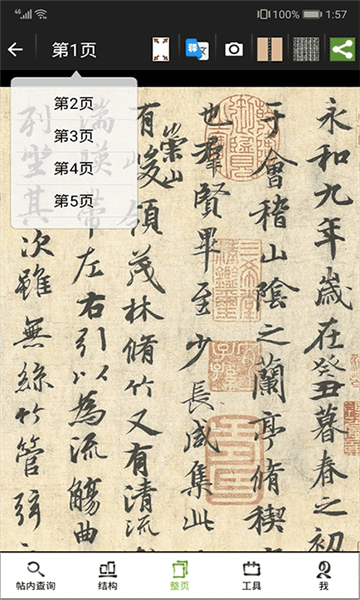 100% 1:57
第1页
第2页
第3页
第4页
第5页
永和九年歲在癸丑暮春之初
于會稽山陰之蘭亭脩稧
也羣賢畢至少長咸集此
有崇山峻領茂林脩竹又有清流
湍暎帶左右引以為流觴曲
列坐其次雖無絲竹管弦
帖内查询 结构 整页 工具 我